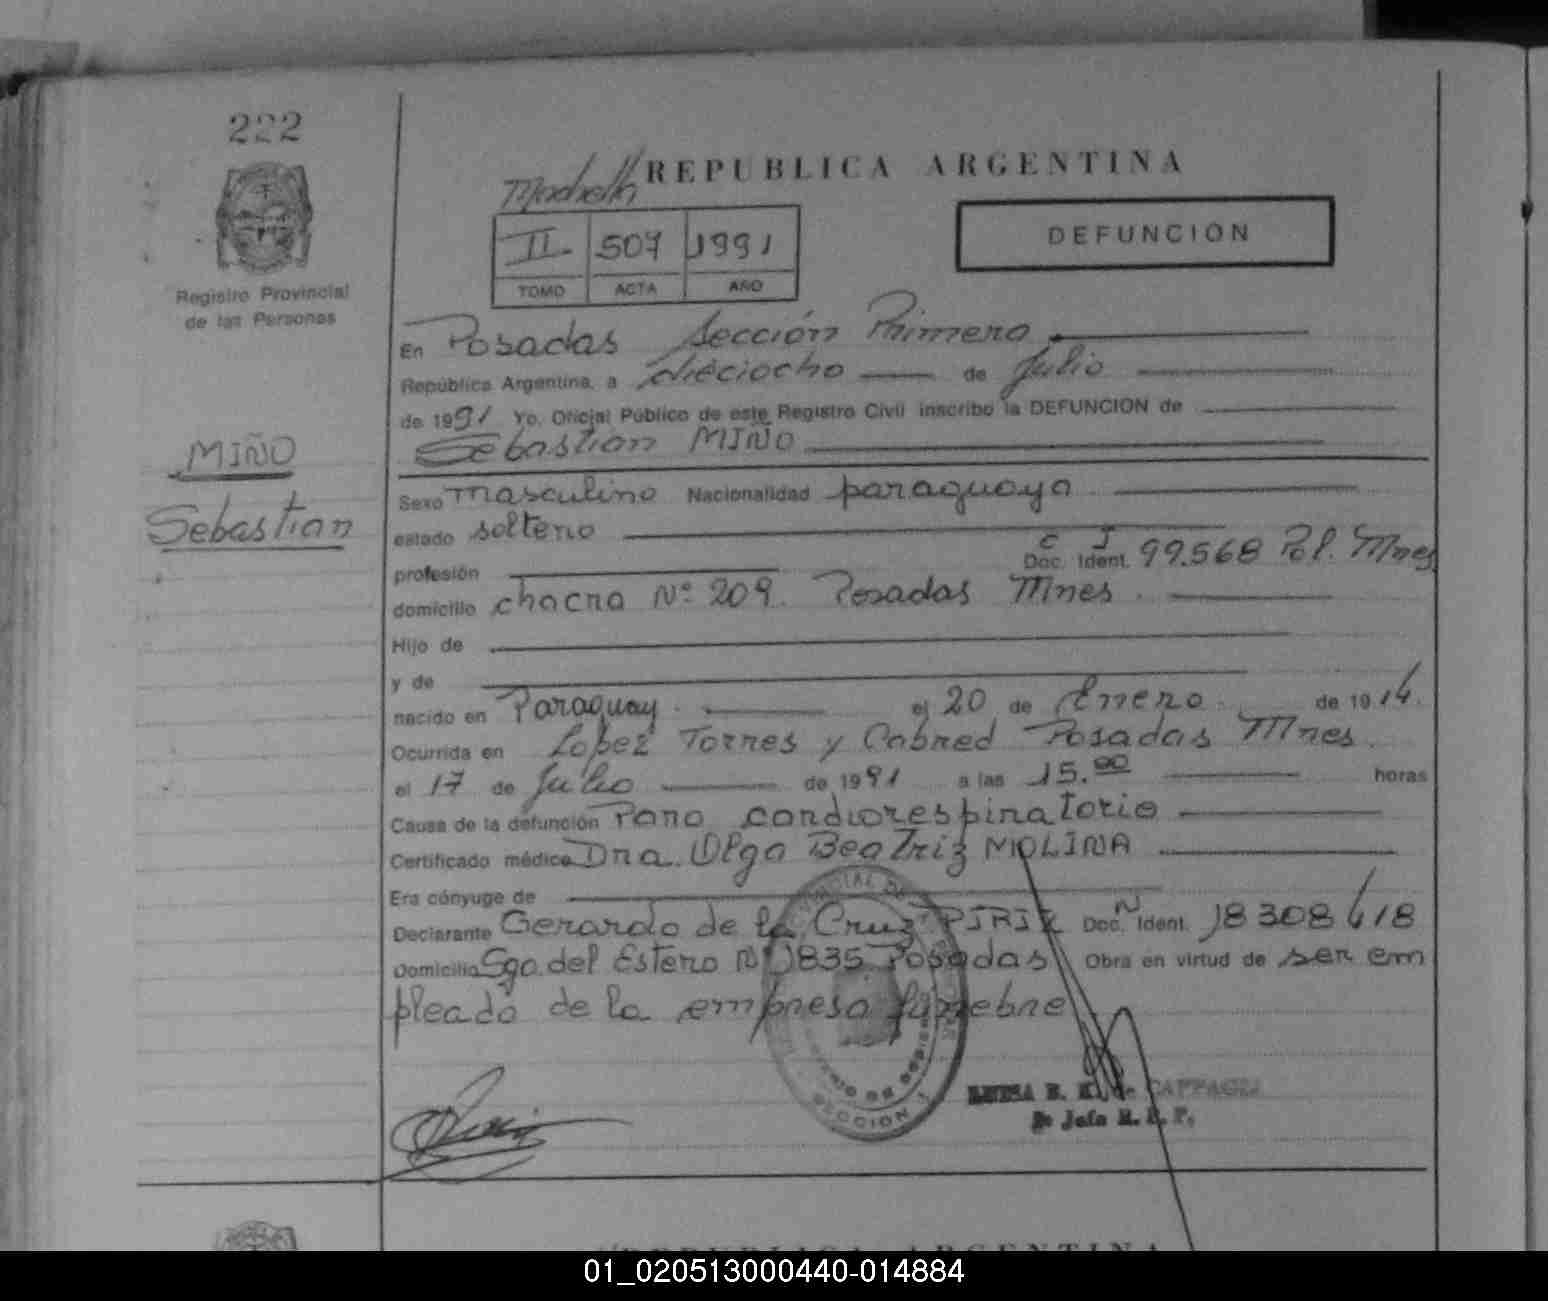 222
REPUBLICA ARGENTINA
II 507 1991
TOMO ACTA AÑO
DEFUNCION
Registro Provincial
de las Personas
En Posadas Sección Primera
República Argentina, a dieciocho de Julio
de 1991 Yo, Oficial Público de este Registro Civil inscribo la DEFUNCION de
Sebastian MIÑO
MIÑO
Sebastian
Sexo masculino Nacionalidad paraguaya
estado soltero
profesión C I Doc. Ident. 99.568 Pol. Mnes
domicilio chacra Nº 209. Posadas Mnes.
Hijo de
y de
nacido en Paraguay. el 20 de Enero. de 1914.
Ocurrida en Lopez Torres y Cabred Posadas Mnes.
el 17 de Julio de 1991 a las 15.00 horas
Causa de la defunción Paro cardiorespiratorio
Certificado médico Dra. Olga Beatriz MOLINA
Era cónyuge de
Declarante Gerardo de la Cruz PIRIZ Doc. N Ident. 18308618
Domicilio Sgo. del Estero Nº 1835 Posadas Obra en virtud de ser em
pleado de la empresa fúnebre
SECCION 1
01_020513000440-014884